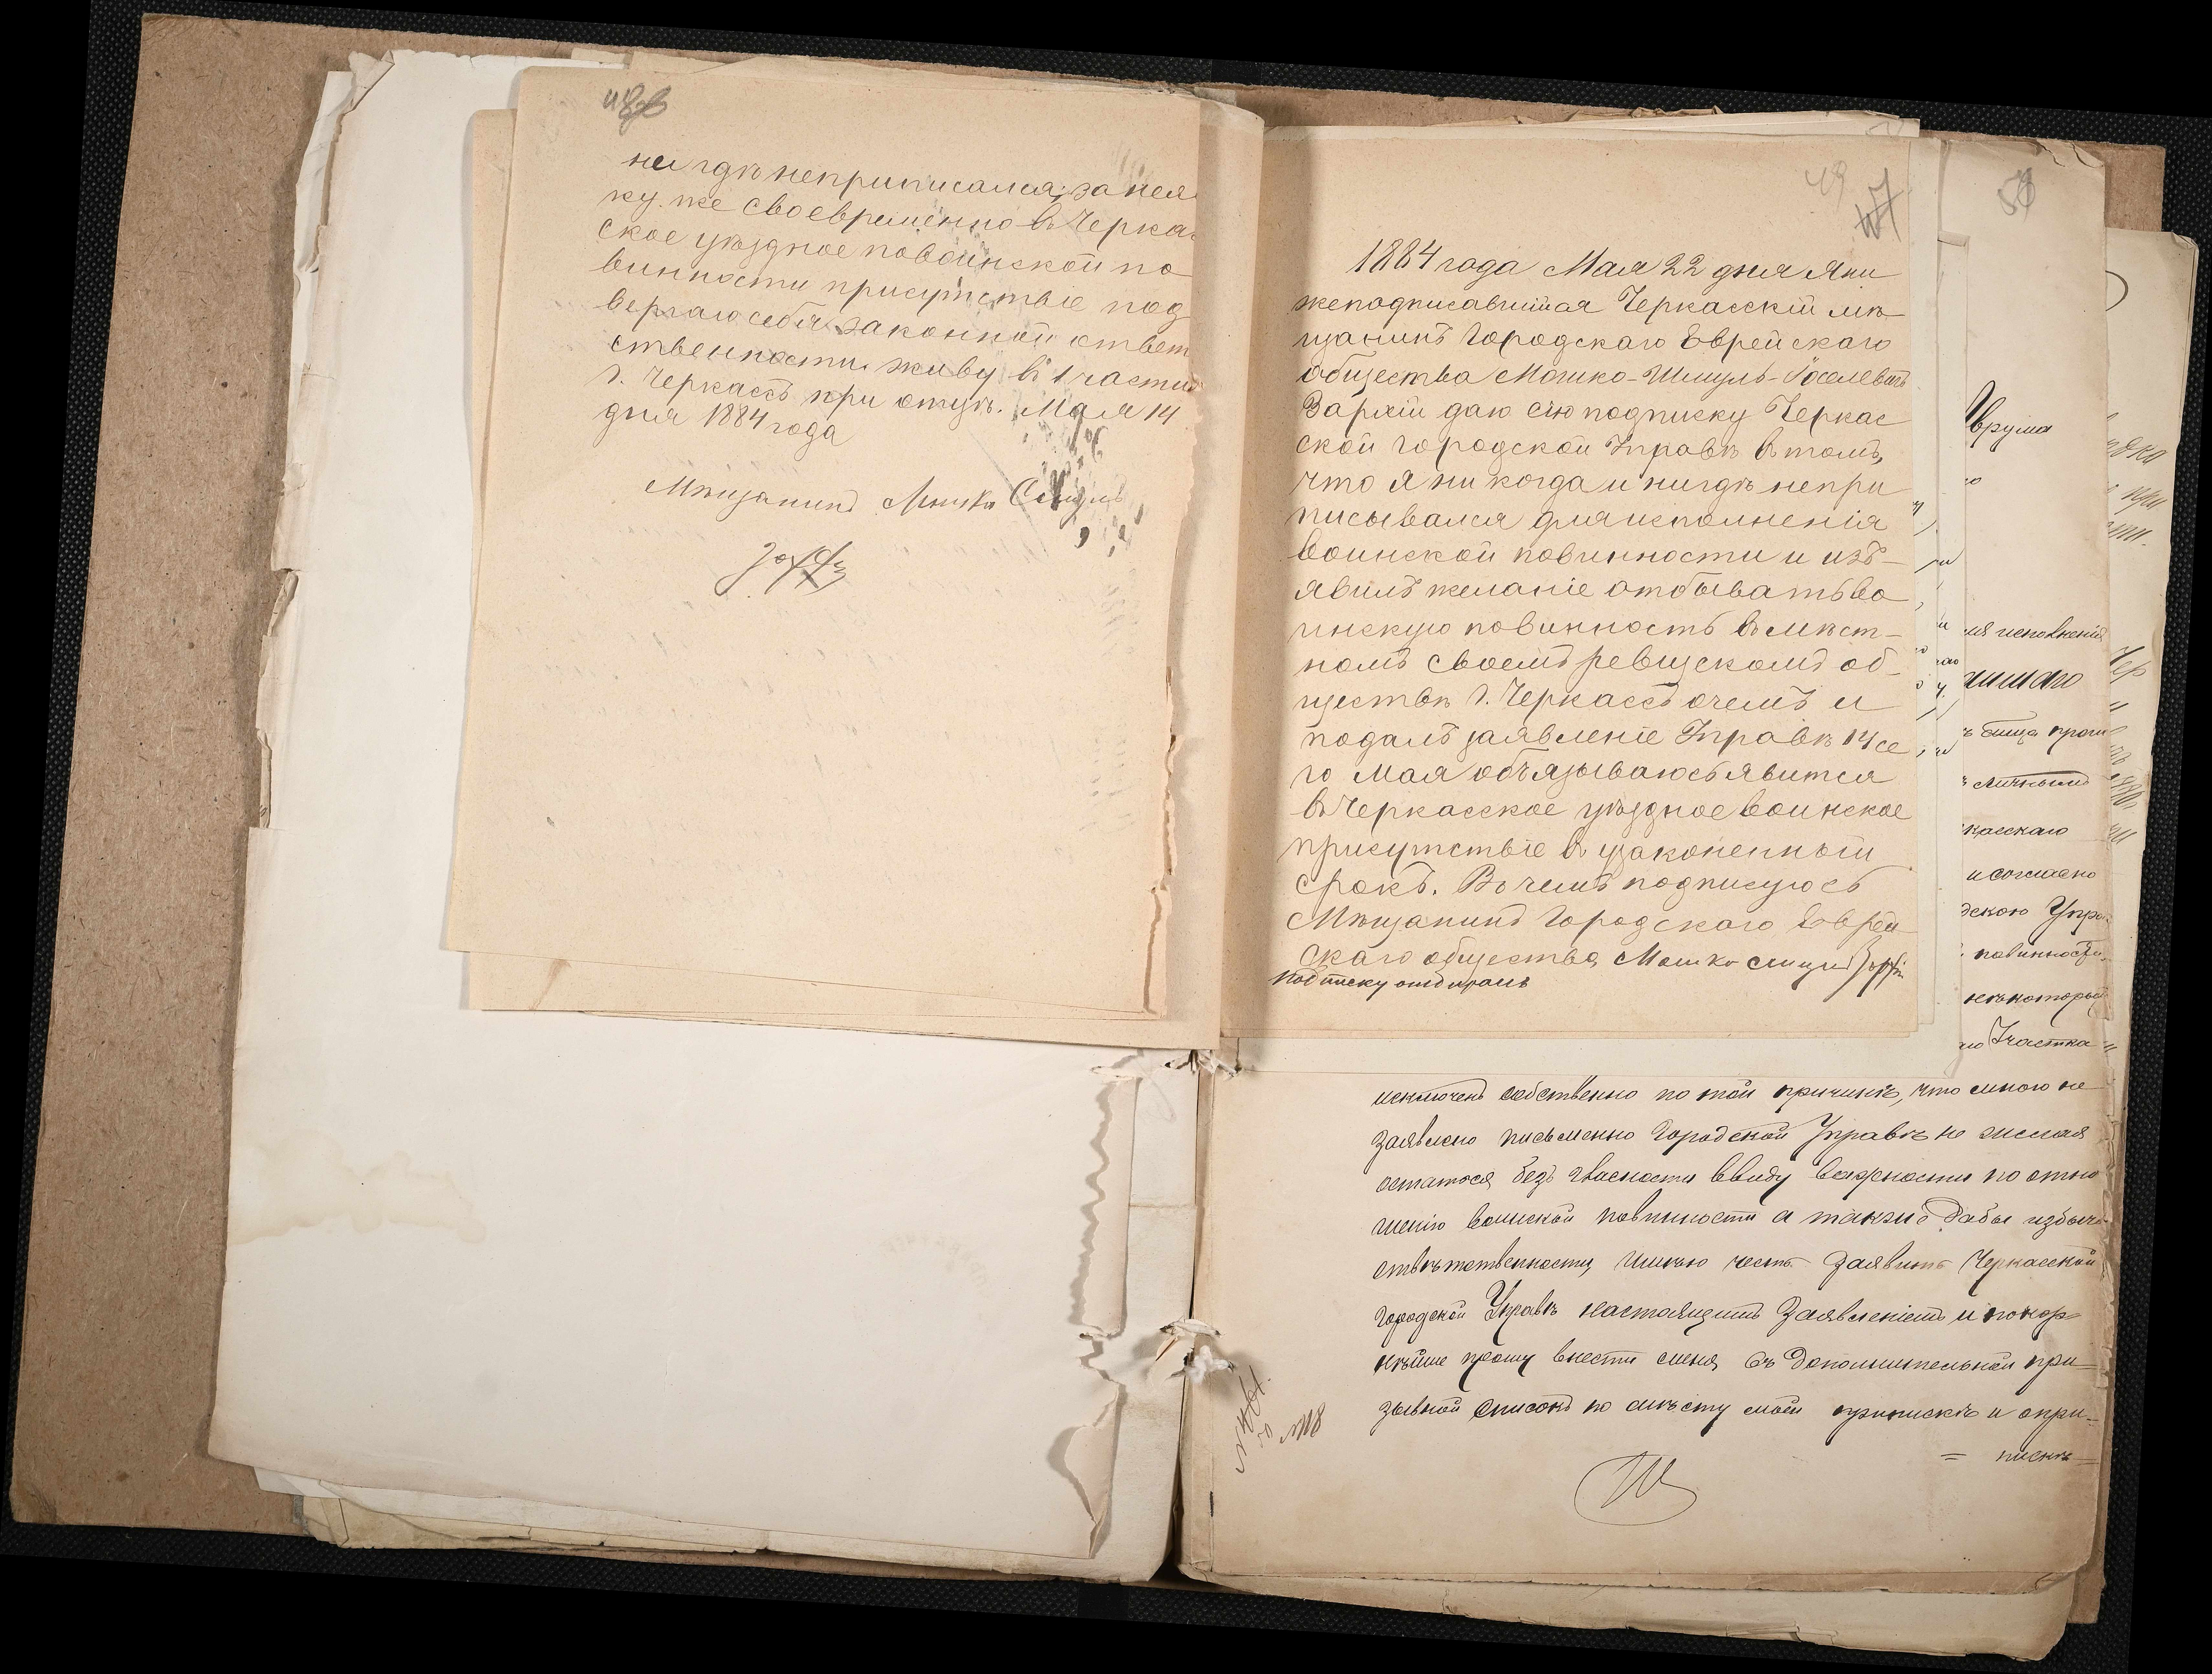 ни гдѣ неприписался; за нея
ку. же своевременно в Черка
ское уѣздное повоинской по
винности присутствіе под
вергаю себя законной ответ
ственности живу в 1 части
г. Черкассъ при отцѣ. Мая 14
дня 1884 года
Мѣщанинъ Мошко
49
1884 года Мая 22 дня Я ни
жеподписавшійся Черкасскій мѣ
щанинъ Городскаго Еврейскаго
общества Мошко-Шмуль-Іоселевъ
Зархій даю сію подписку Черкас
ской городской Управѣ в томъ,
что я ни когда и нигдѣ непри
писывался для исполненія
воинской повинности и изъ-
явилъ желаніе отбывать во
инскую повинность в мѣст-
номъ своемъ ревизскомъ об-
ществѣ г. Черкассъ очемъ и
подалъ заявленіе Управѣ 14 се
го Мая обязываюсь явится
в Черкасское уѣздное воинское
присутствіе в узаконенный
срокъ. В чемъ подписуюсь
Мѣщанинъ Городскаго Еврей
скаго общества Мошко Шмуль
подписку отбиралъ
врума
ія исполненія
личнымъ
касскаго
и согласно
дскою Упра
повинности
нѣкоторый
го Участка
исключенъ собственно по той причинѣ, что мною не
заявлено письменно Городской Управѣ не желая
остатся безъ гласности ввиду важности по отно
шенію воинской повинности а также дабы избѣчь
отвѣтственности, имѣю честь заявить Черкасской
Городской Управѣ настоящимъ Заявленіемъ и покор
нѣйше прошу внести меня въ дополнительный при-
зывной списокъ по мѣсту моей приписки и опри-
= пискѣ =
№ 18